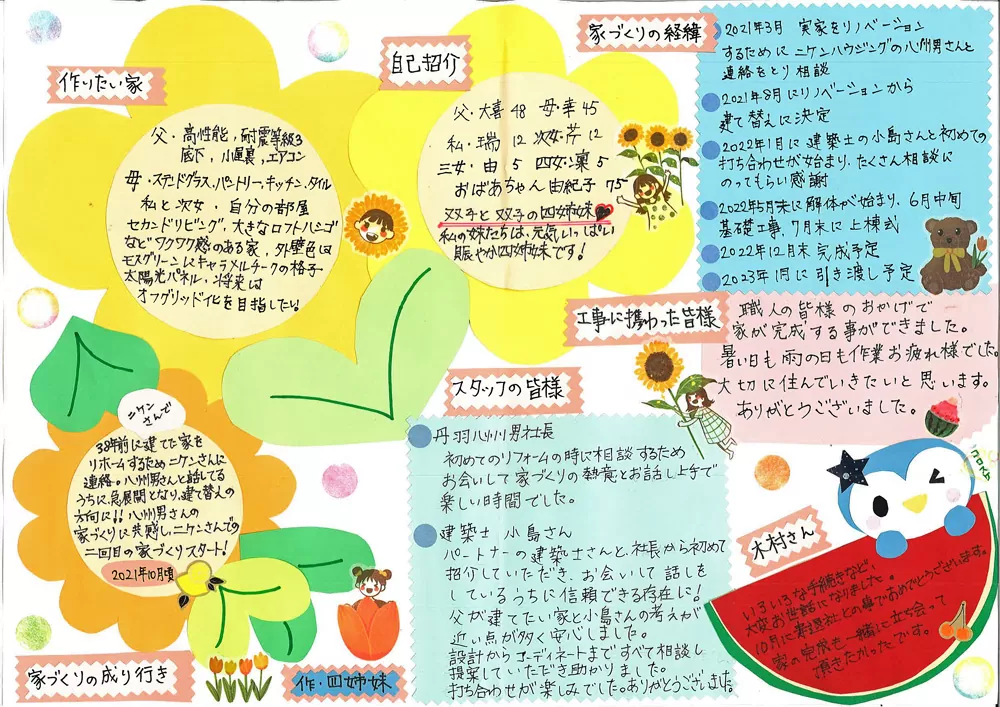 作りたい家
父・高性能,耐震等級3
廊下,小屋裏,エアコン
母・ステンドグラス,パントリー,キッチン,タイル
私と次女・自分の部屋
セカンドリビング,大きなロフトハシゴ
などワクワク感のある家,外壁色は
モスグリーンにキャラメルチークの格子
太陽光パネル,将来は
オフグリッド化を目指したい!
自己紹介
父・大喜 48 母・幸 45
私・瑞 12 次女・芹 12
三女・由 5 四女・凜 5
おばあちゃん 由紀子 75
双子と双子の四姉妹
私の妹たちは、元気いっぱい
賑やか四姉妹です!
家づくりの経緯
2021年3月 実家をリノベーション
するために ニケンハウジングの八州男さんと
連絡をとり 相談
2021年8月にリノベーションから
建て替えに決定
2022年1月に建築士の小島さんと初めての
打ち合わせが始まり,たくさん相談に
のってもらい感謝
2022年5月末に解体が始まり,6月中旬
基礎工事,7月末に上棟式
2022年12月末 完成予定
2023年1月に引き渡し予定
工事に携わった皆様
職人の皆様のおかげで
家が完成する事ができました。
暑い日も雨の日も作業お疲れ様でした。
大切に住んでいきたいと思います。
ありがとうございました。
スタッフの皆様
丹羽八州男社長
初めてのリフォームの時に相談するため
お会いして家づくりの熱意とお話し上手で
楽しい時間でした。
建築士 小島さん
パートナーの建築士さんと、社長から初めて
招介していただき、お会いして話しを
しているうちに信頼できる存在に!
父が建てたい家と小島さんの考えが
近い点が多く安心しました。
設計からコーディネートまですべて相談し
提案していただき助かりました。
打ち合わせが楽しみでした。ありがとうございました。
ニケン
さんで
38年前に建てた家を
リホームするためニケンさんに
連絡。八州男さんと話してる
うちに、急展開となり,建て替えの
方向に!!八州男さんの
家づくりに共感し,ニケンさんでの
二回目の家づくりスタート!
2021年10月頃
家づくりの成り行き
作・四姉妹
木村さん
いろいろな手続きなど,
大変お世話になりました。
10月に寿退社との事でおめでとうございます。
家の完成も一緒に立ち会って
頂きたかったです。